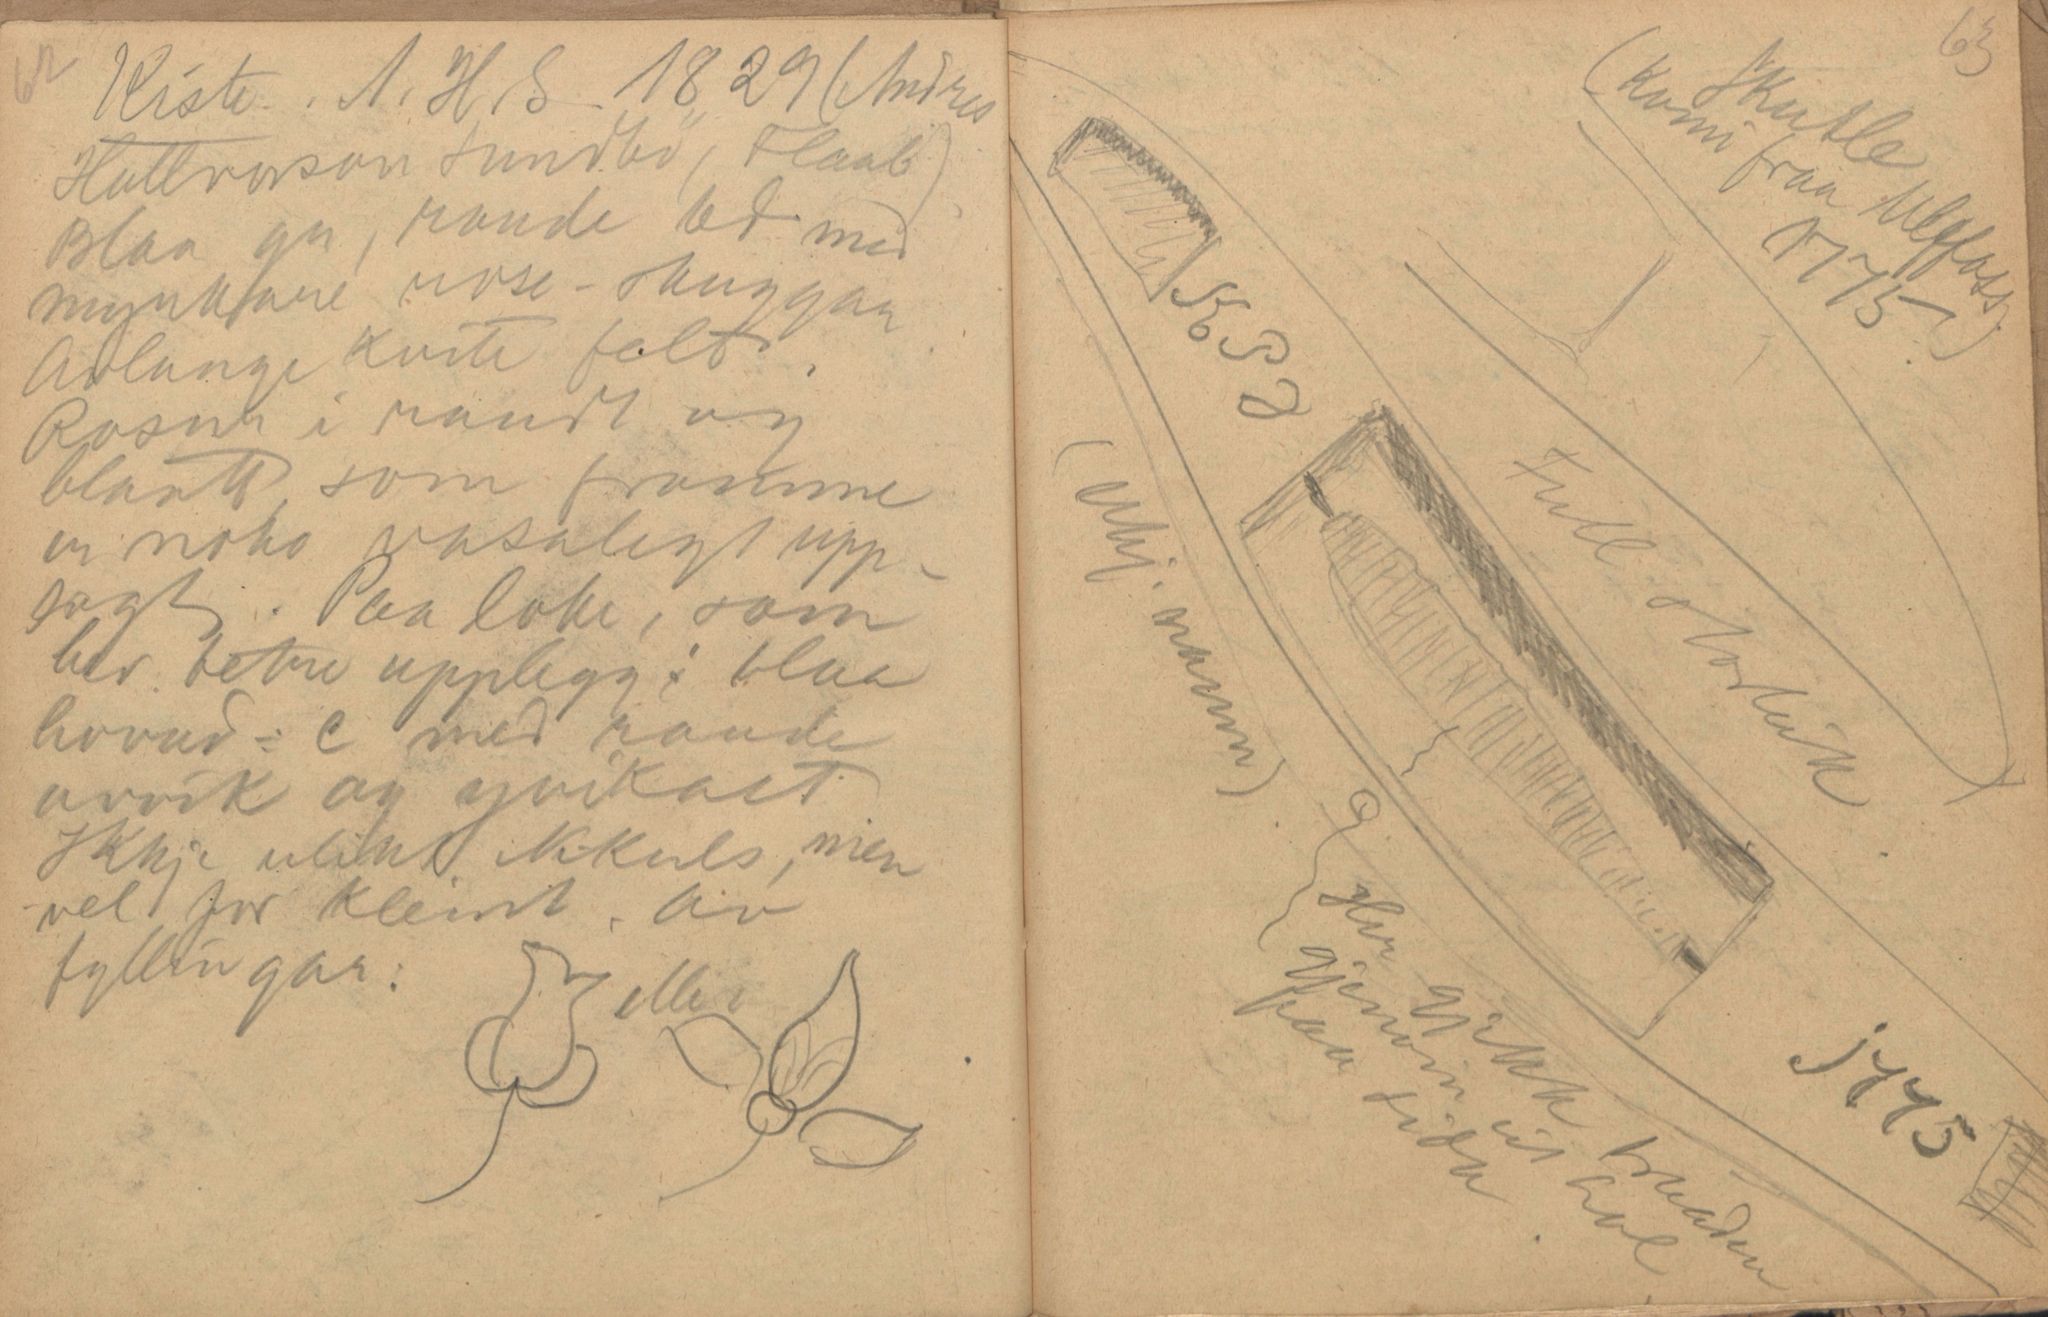 62
Kiste. A. H. S. 1829 (Andres
Hallvorson Sundbö, Flaab.)
Blaa gr, raude bd med
myrkare rose-skuggaa
Avlange kvite felt.
Rosur i raudt og
blaatt, som framme
er noko vasalegt upp-
sagt. Paa loke, som
her betre upplegg: blaa
hovud-C med raude
avvik og
Ikkje ulikt Nkuls, men
vel for kleint. Av
fyllingar:
eller
63
Skutle
(komi fraa Ulefoss)
1775
Full storleik
(Ikkj. namn)
Her gjekk traaden
gjenom eit hol
paa sida
1775